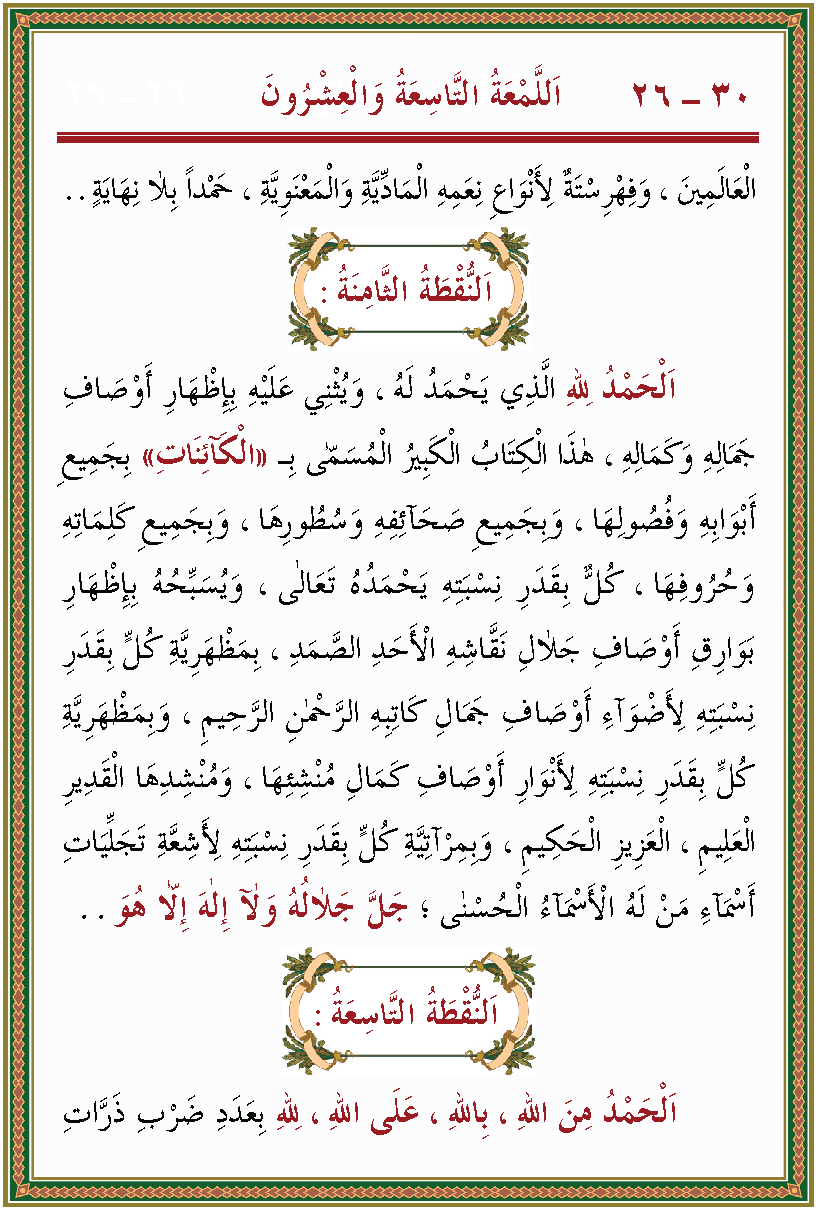 ٣٠ – ٢٦ اَللَّمْعَةُ التَّاسِعَةُ وَالْعِشْرُونَ
الْعَالَمِينَ ، وَفِهْرِسْتَةٌ لِأَنْوَاعِ نِعَمِهِ الْمَادِّيَّةِ وَالْمَعْنَوِيَّةِ ، حَمْداً بِلاٰ نِهَايَةٍ . .
اَلنُّقْطَةُ الثَّامِنَةُ :
اَلْحَمْدُ لِلّٰهِ الَّذِي يَحْمَدُ لَهُ ، وَيُثْنِي عَلَيْهِ بِإِظْهَارِ أَوْصَافِ
جَمَالِهِ وَكَمَالِهِ ، هٰذَا الْكِتَابُ الْكَبِيرُ الْمُسَمّٰى بِـ «الْكَآئِنَاتِ» بِجَمِيعِ
أَبْوَابِهِ وَفُصُولِهَا ، وَبِجَمِيعِ صَحَآئِفِهِ وَسُطُورِهَا ، وَبِجَمِيعِ كَلِمَاتِهِ
وَحُرُوفِهَا ، كُلٌّ بِقَدَرِ نِسْبَتِهِ يَحْمَدُهُ تَعَالٰى ، وَيُسَبِّحُهُ بِإِظْهَارِ
بَوَارِقِ أَوْصَافِ جَلاٰلِ نَقَّاشِهِ الْأَحَدِ الصَّمَدِ ، بِمَظْهَرِيَّةِ كُلٍّ بِقَدَرِ
نِسْبَتِهِ لِأَضْوَآءِ أَوْصَافِ جَمَالِ كَاتِبِهِ الرَّحْمٰنِ الرَّحِيمِ ، وَبِمَظْهَرِيَّةِ
كُلٍّ بِقَدَرِ نِسْبَتِهِ لِأَنْوَارِ أَوْصَافِ كَمَالِ مُنْشِئِهَا ، وَمُنْشِدِهَا الْقَدِيرِ
الْعَلِيمِ ، الْعَزِيزِ الْحَكِيمِ ، وَبِمِرْآتِيَّةِ كُلٍّ بِقَدَرِ نِسْبَتِهِ لِأَشِعَّةِ تَجَلِّيَاتِ
أَسْمَآءِ مَنْ لَهُ الْأَسْمَآءُ الْحُسْنٰى ؛ جَلَّ جَلاٰلُهُ وَلاٰۤ إِلٰهَ إِلّاٰ هُوَ . .
اَلنُّقْطَةُ التَّاسِعَةُ :
اَلْحَمْدُ مِنَ اللهِ ، بِاللهِ ، عَلَى اللهِ ، لِلّٰهِ بِعَدَدِ ضَرْبِ ذَرَّاتِ